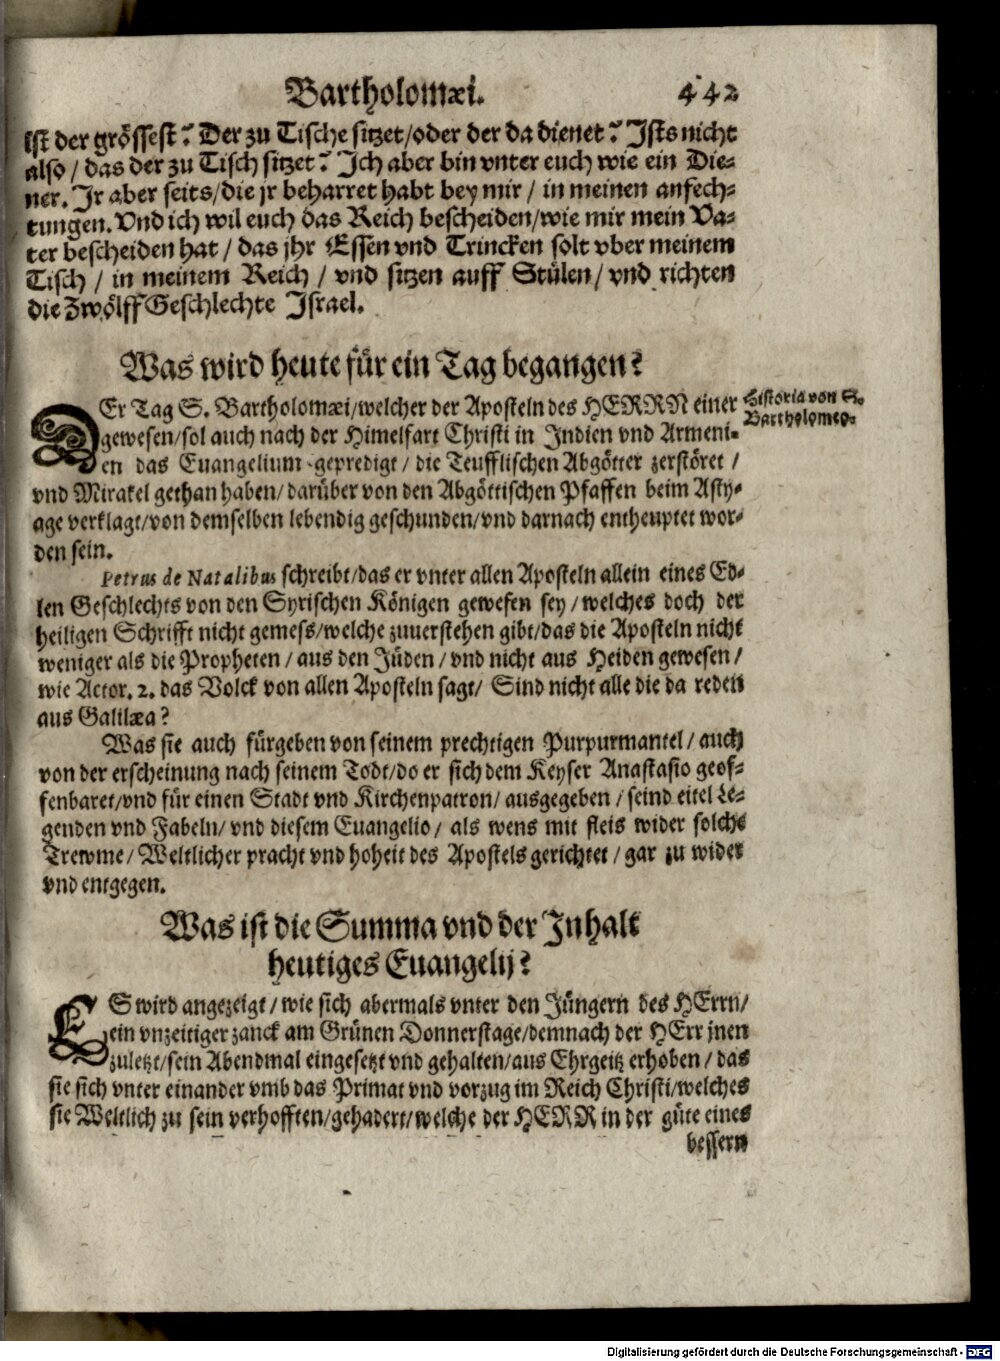 Bartholomæi. 442
ist der grössest? Der zu Tische sitzet/oder der da dienet? Ists nicht
also / das der zu Tisch sitzet? Ich aber bin vnter euch wie ein Die-
ner. Ir aber seits/die jr beharret habt bey mir / in meinen anfech-
tungen. Vnd ich wil euch das Reich bescheiden/wie mir mein Va-
ter bescheiden hat / das jhr Essen vnd Trincken solt vber meinem
Tisch / in meinem Reich / vnd sitzen auff Stülen/ vnd richten
die Zwölff Geschlechte Israel.
Was wird heute für ein Tag begangen?
DEr Tag S. Bartholomæi/welcher der Aposteln des HERRN einer
gewesen/sol auch nach der Himelfart Christi in Indien vnd Armeni-
en das Euangelium gepredigt / die Teufflischen Abgötter zerstöret /
vnd Mirakel gethan haben/darüber von den Abgöttischen Pfaffen beim Asty-
age verklagt/von demselben lebendig geschunden/vnd darnach entheuptet wor-
den sein.
Historia von S.
Bartholomeo.
Petrus de Natalibus schreibt/das er vnter allen Aposteln allein eines Ed-
len Geschlechts von den Syrischen Königen gewesen sey / welches doch der
heiligen Schrifft nicht gemess/welche zuuerstehen gibt/das die Aposteln nicht
weniger als die Propheten / aus den Jüden / vnd nicht aus Heiden gewesen /
wie Actor. 2. das Volck von allen Aposteln sagt/ Sind nicht alle die da reden
aus Galilæa?
Was sie auch fürgeben von seinem prechtigen Purpurmantel / auch
von der erscheinung nach seinem Todt/do er sich dem Keyser Anastasio geof-
fenbaret/vnd für einen Stadt vnd Kirchenpatron/ ausgegeben / seind eitel Le-
genden vnd Fabeln/ vnd diesem Euangelio / als wens mit fleis wider solche
Trewme / Weltlicher pracht vnd hoheit des Apostels gerichtet / gar zu wider
vnd entgegen.
Was ist die Summa vnd der Inhalt
heutiges Euangelij?
ES wird angezeigt / wie sich abermals vnter den Jüngern des HErrn/
ein vnzeitiger zanck am Grünen Donnerstage/demnach der HErr jnen
zuletzt/sein Abendmal eingesetzt vnd gehalten/aus Ehrgeitz erhoben / das
sie sich vnter einander vmb das Primat vnd vorzug im Reich Christi/welches
sie Weltlich zu sein verhofften/gehadert/welche der HERR in der güte eines
bessern
Digitalisierung gefördert durch die Deutsche Forschungsgemeinschaft - DFG